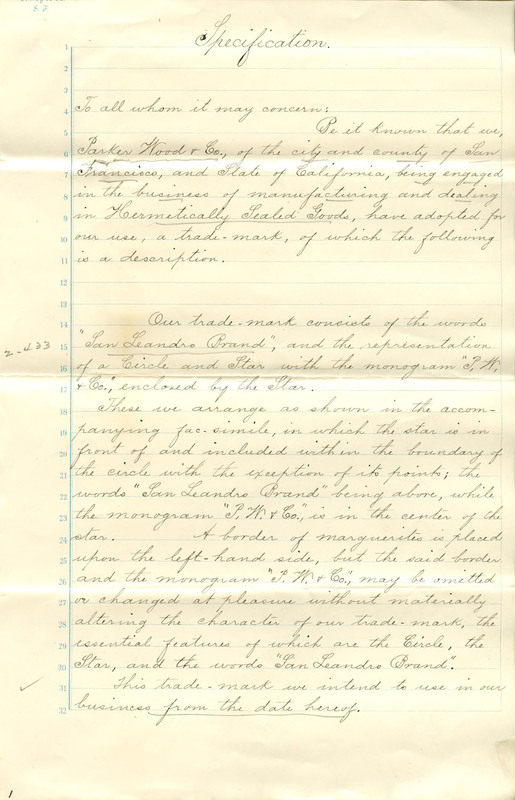 Specification.
1
2
3
4 To all whom it may concern:
5 Be it known that we,
6 Parker Wood & Co., of the city and county of San
7 Francisco, and State of California, being engaged
8 in the business of manufacturing and dealing
9 in Hermetically Sealed Goods, have adopted for
10 our use, a trade-mark, of which the following
11 is a description.
12
13
14 Our trade-mark consists of the words
2-433 15 "San Leandro Brand", and the representation
16 of a Circle and Star with the monogram "P. W.
17 & Co.", enclosed by the Star.
18 These we arrange as shown in the accom-
19 panying fac-simile, in which the star is in
20 front of and included within the boundary of
21 the circle with the exception of its points; the
22 words "San Leandro Brand" being above, while
23 the monogram "P. W. & Co.", is in the center of the
24 star. A border of marguerites is placed
25 upon the left-hand side, but the said border
26 and the monogram "P. W. & Co.", may be omitted
27 or changed at pleasure without materially
28 altering the character of our trade-mark, the
29 essential features of which are the Circle, the
30 Star, and the words "San Leandro Brand".
31 This trade-mark we intend to use in our
32 business from the date hereof.